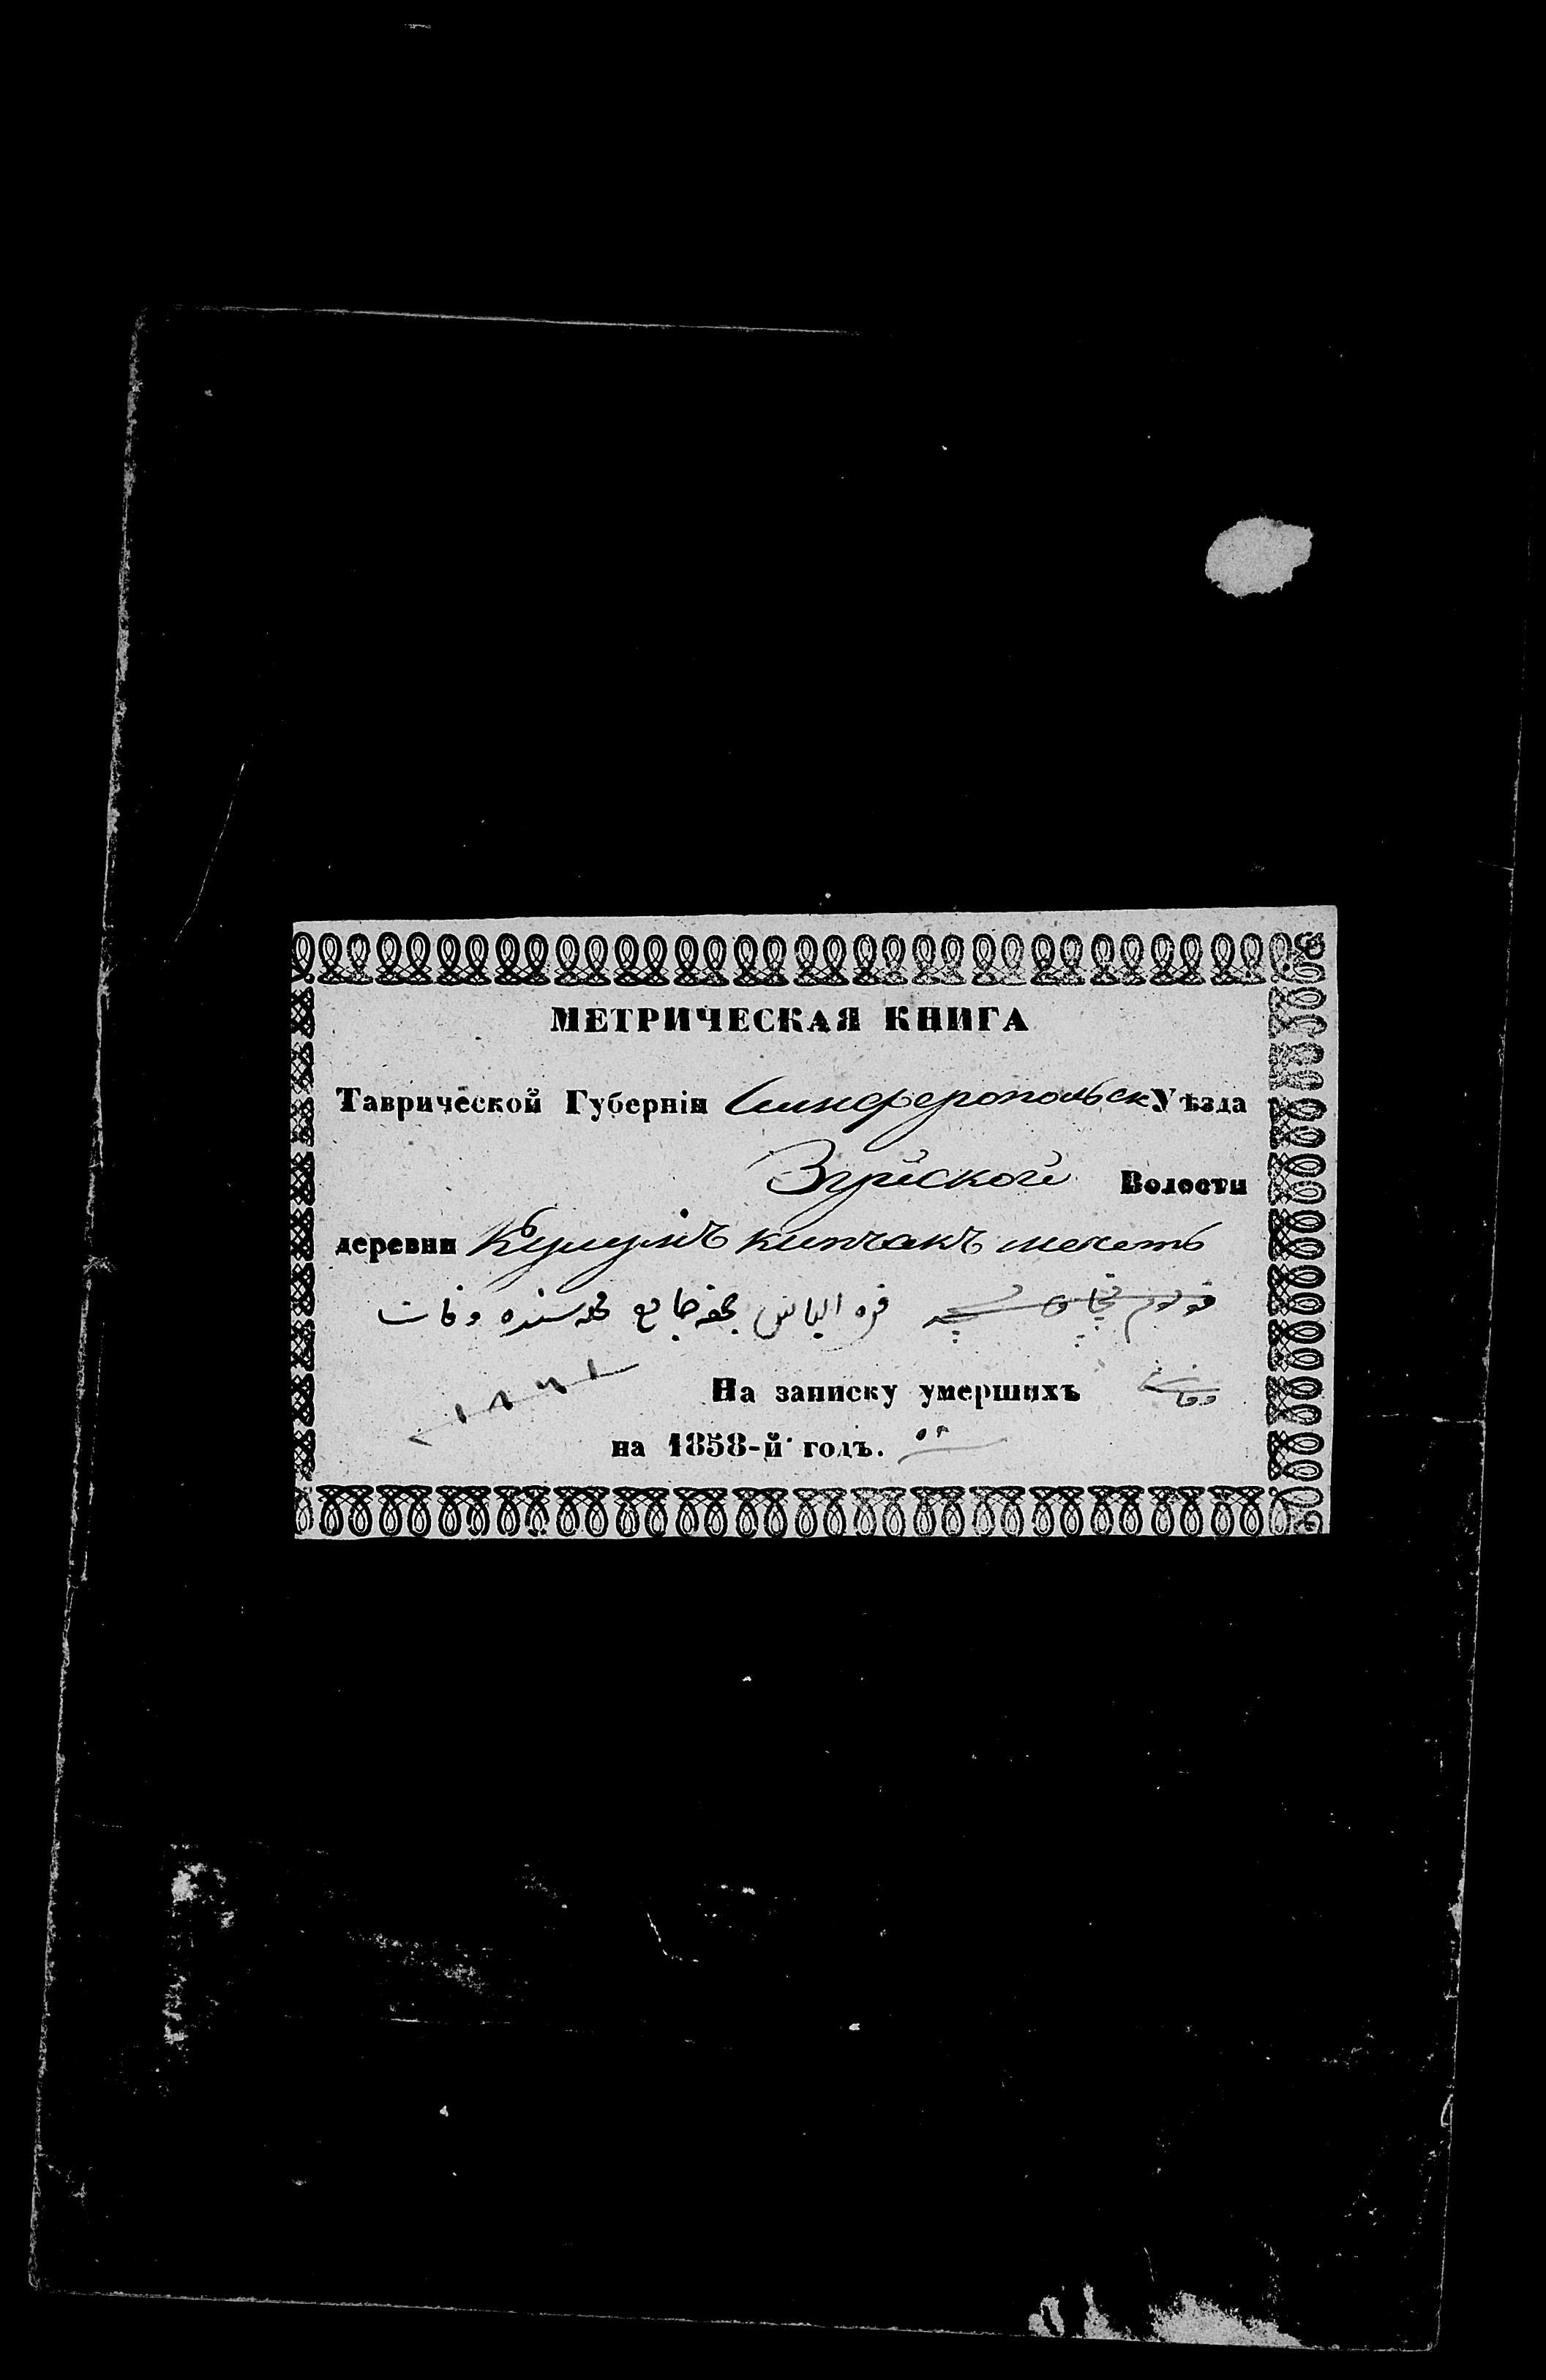 МЕТРИЧЕСКАЯ КНИГА
Таврической Губерніи Симферопольск Уѣзда
Зуйской Волости
деревни Кипчакъ мечеть
قره الياس جامع محله سنده وفات
На записку умершихъ وفات
на 1858-й годъ. ٥٨